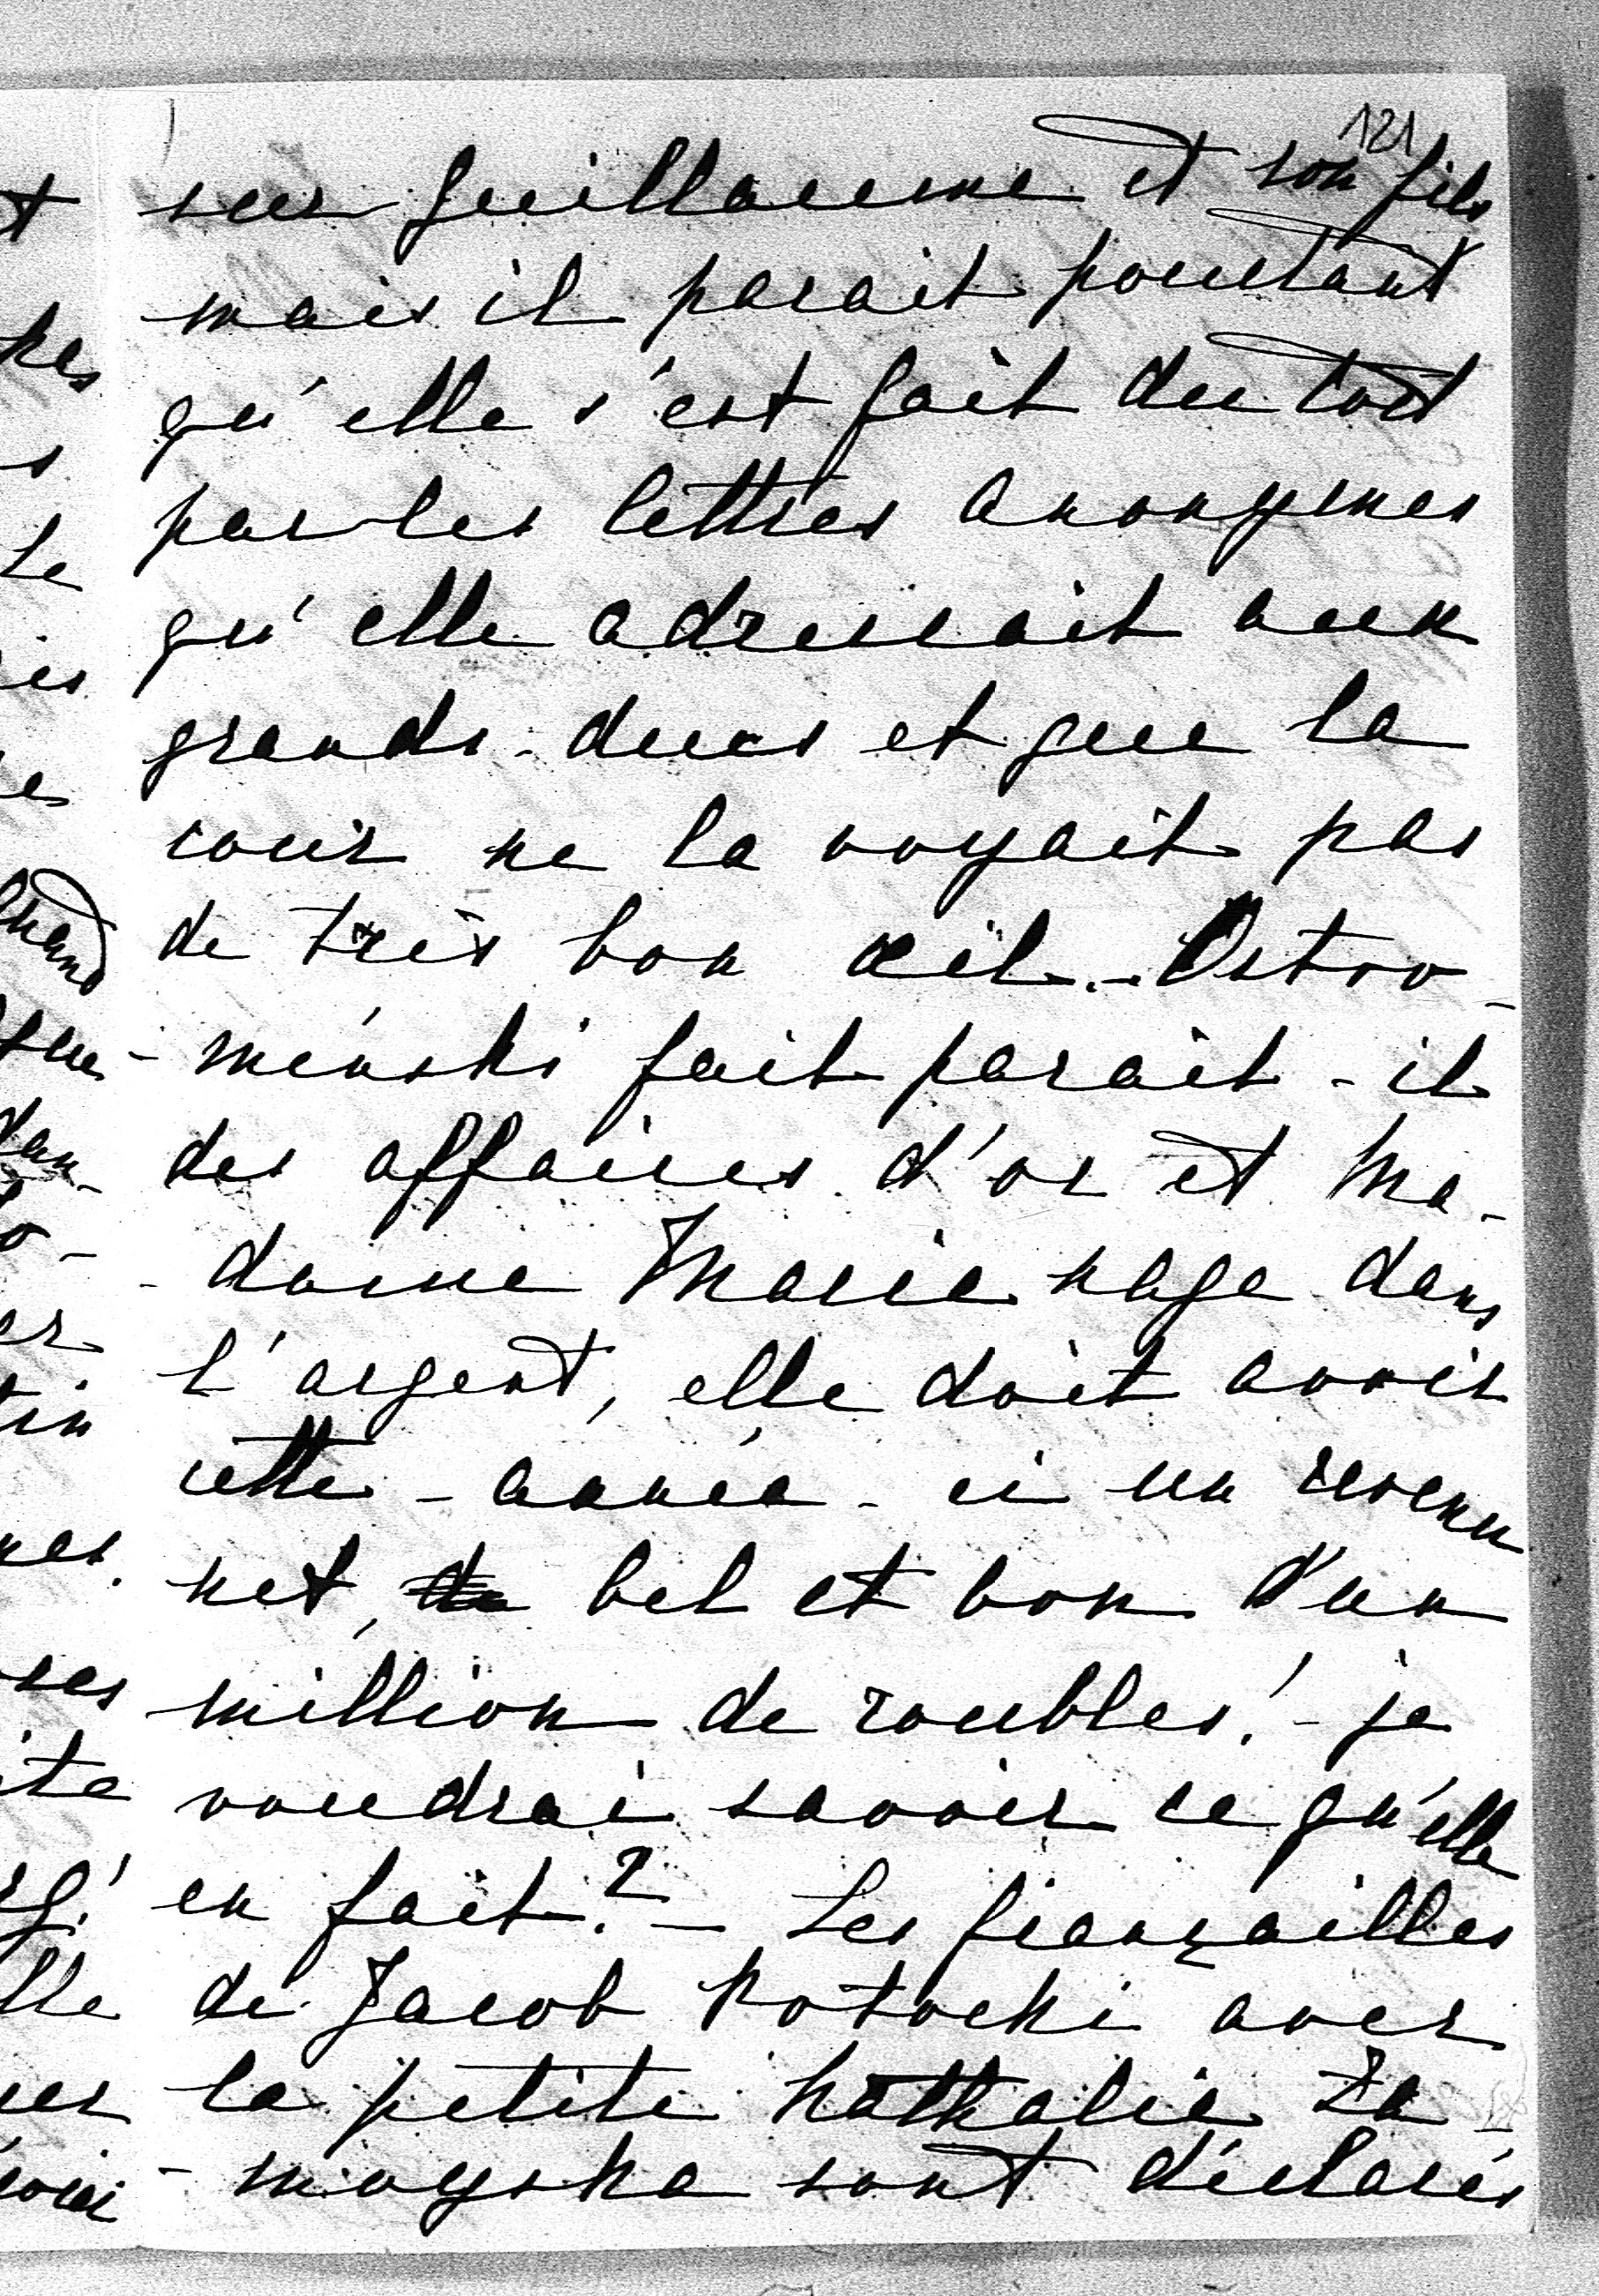 121
sur Guillaume et son fils
mais il parait pourtant
qu'elle s'est fait du tort
par les lettres anonymes
qu'elle adressait aux
grands-ducs et que la
cour ne la voyait pas
de très bon œil. - Ostro-
- ménski fait parait-il
des affaires d'or et Ma-
- dame Marie nage dans
l'argent, elle doit avoir
cette-année-ci un revenu
net, de bel et bon d'un
million de roubles! - je
voudrai savoir ce qu'elle
en fait? - Les fiançailles
de Jacob Potocki avec
la petite Nathalie Za-
- moyska sont déclarés